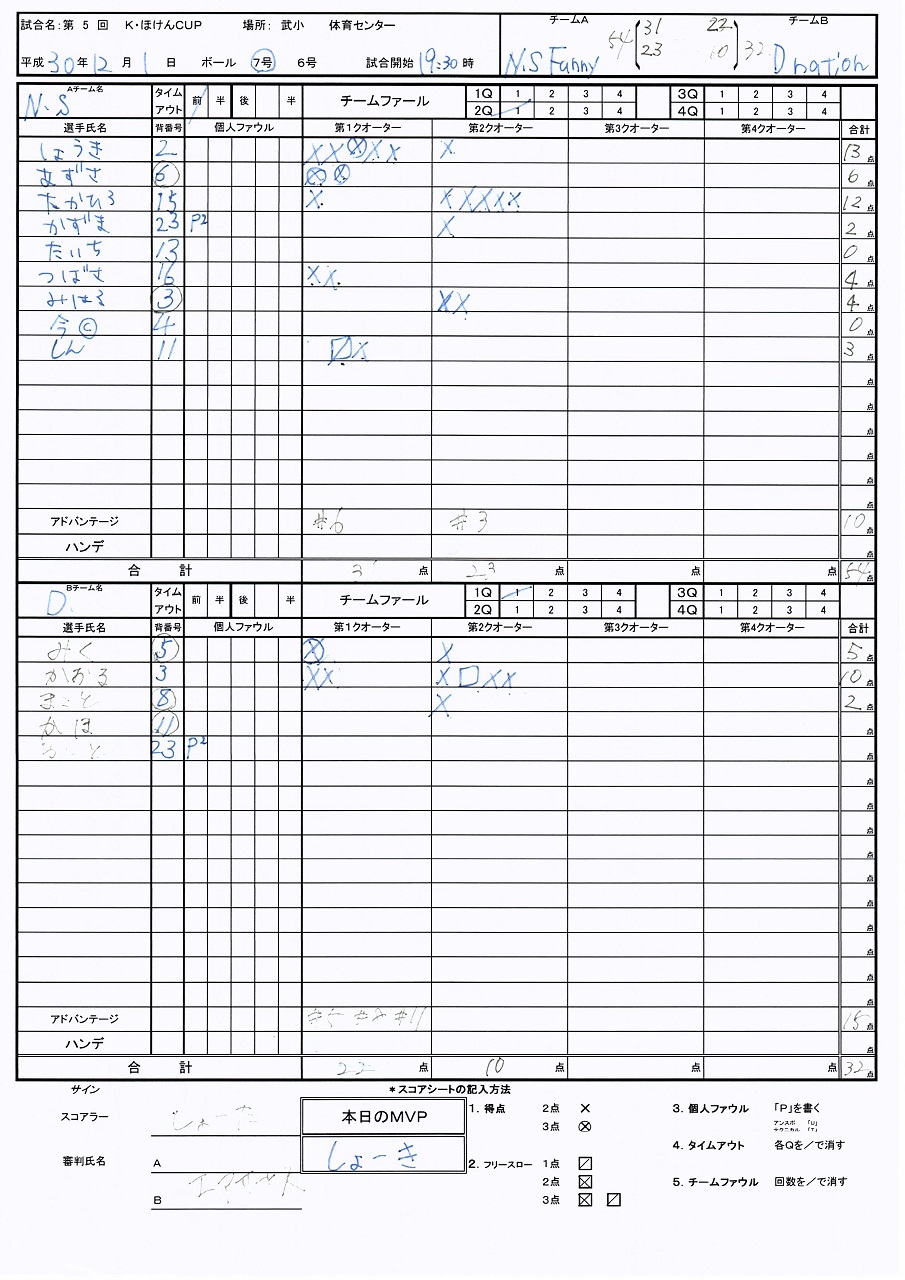 試合名：第 5 回 K・ほけんCUP 場所： 武小 体育センター チームA チームB
54 31 22 32
23 10
平成30年12月1日 ボール 7号 6号 試合開始19:30時 N.S Fanny D nation
Aチーム名 N.S タイムアウト 前 半 後 半 チームファール 1Q 1 2 3 4 3Q 1 2 3 4
2Q 1 2 3 4 4Q 1 2 3 4
選手氏名 背番号 個人ファウル 第1クオーター 第2クオーター 第3クオーター 第4クオーター 合計
しょうき 2 X X ⊗ X X X 13点
あずさ 6 ⊗ ⊗ 6点
たかひろ 15 X X X X X X 12点
かずま 23 P2 X 2点
たいち 13 0点
つばさ 16 X X 4点
みはる 3 X X 4点
今 © 4 0点
しん 11 〼 X 3点
点
点
点
点
点
点
アドバンテージ #6 #3 10点
ハンデ 点
合 計 31点 23点 点 点 54点
Bチーム名 D. タイムアウト 前 半 後 半 チームファール 1Q 1 2 3 4 3Q 1 2 3 4
2Q 1 2 3 4 4Q 1 2 3 4
選手氏名 背番号 個人ファウル 第1クオーター 第2クオーター 第3クオーター 第4クオーター 合計
みく 5 ⊗ X 5点
かおる 3 X X X □ X X 10点
まこと 8 X 2点
かほ 11 点
23 P2 点
点
点
点
点
点
点
点
点
点
点
アドバンテージ #5 #8 #11 15点
ハンデ 点
合 計 22点 10点 点 点 32点
サイン ＊スコアシートの記入方法
スコアラー じょーた 本日のMVP 1. 得点 2点 × 3. 個人ファウル 「P」を書く
3点 ⊗ アンスポ 「U」
テクニカル 「T」
しょーき 4. タイムアウト 各Qを／で消す
審判氏名 A 2. フリースロー 1点 〼
2点 ☒ 5. チームファウル 回数を／で消す
B 3点 ☒ 〼